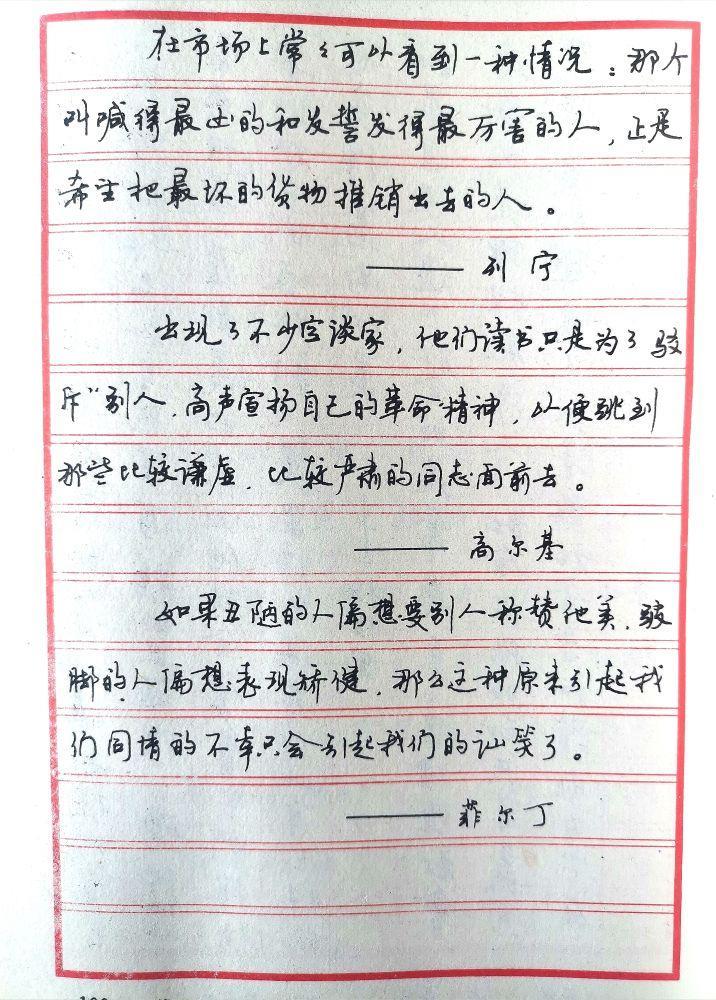 在市场上常々可以看到一种情况：那个
叫喊得最凶的和发誓发得最厉害的人，正是
希望把最坏的货物推销出去的人。
——— 列宁
出现了不少空谈家，他们读书只是为了驳
斥"别人，高声宣扬自己的革命精神，以便跳到
那些比较谦虚，比较严肃的同志面前去。
——— 高尔基
如果丑陋的人偏想要别人称赞他美，跛
脚的人偏想表现矫健，那么这种原来引起我
们同情的不幸只会引起我们的讪笑了。
——— 菲尔丁